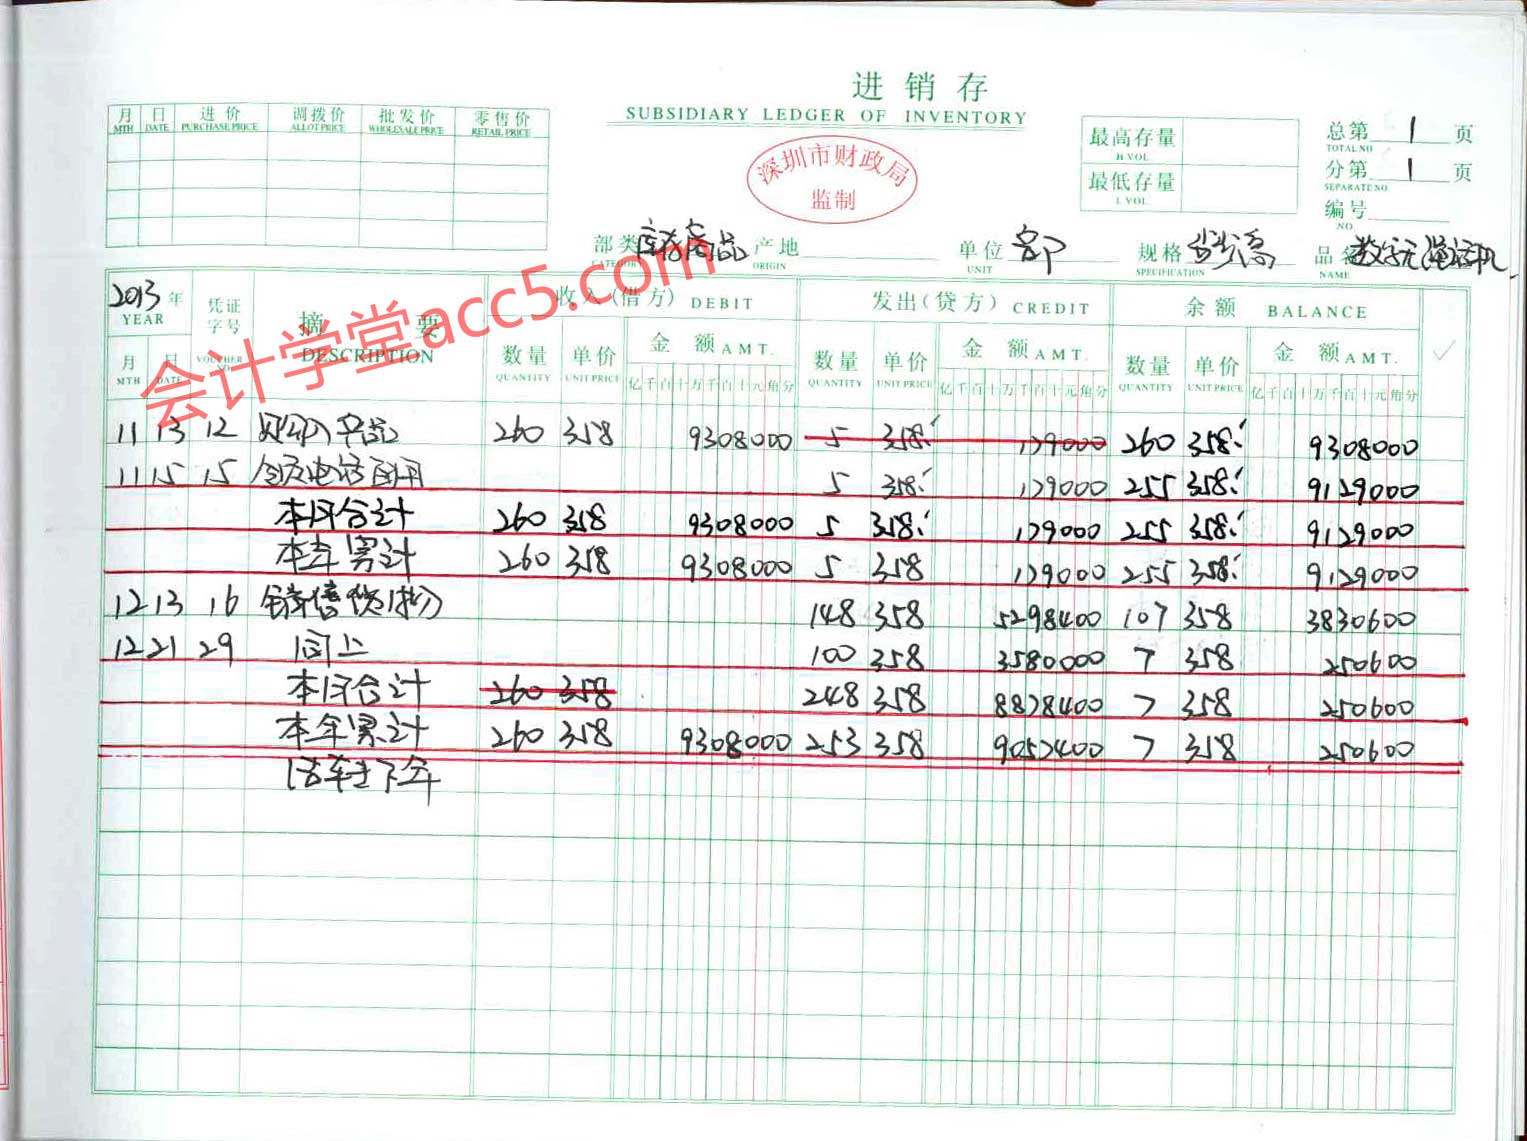 进销存
SUBSIDIARY LEDGER OF INVENTORY
深圳市财政局
监制
月 日 进价 调拨价 批发价 零售价
MTH DATE PURCHASE PRICE ALLOT PRICE WHOLESALE PRICE RETAIL PRICE
最高存量
H VOL
最低存量
L VOL
总第 1 页
TOTAL NO
分第 1 页
SEPARATE NO
编号
NO
部类 库存商品 产地 单位 规格 品名
CATEGORY ORIGIN UNIT SPECIFICATION NAME
会计学堂acc5.com
2013 年 凭证 摘要 收入(借方) DEBIT 发出(贷方) CREDIT 余额 BALANCE
YEAR 字号 DESCRIPTION
月 日 VOUCHER NO 数量 单价 金额 AMT. 数量 单价 金额 AMT. 数量 单价 金额 AMT.
MTH DATE QUANTITY UNIT PRICE QUANTITY UNIT PRICE QUANTITY UNIT PRICE
亿千百十万千百十元角分 亿千百十万千百十元角分 亿千百十万千百十元角分
11 13 12 260 358 9308000 5 358 179000 260 358 9308000
11 15 15 5 358 179000 255 358 9129000
本月合计 260 358 9308000 5 358 179000 255 358 9129000
本年累计 260 358 9308000 5 358 179000 255 358 9129000
12 13 16 销售 148 358 5298400 107 358 3830600
12 21 29 同上 100 358 3580000 7 358 250600
本月合计 260 358 248 358 8878400 7 358 250600
本年累计 260 358 9308000 253 358 9057400 7 358 250600
结转下年